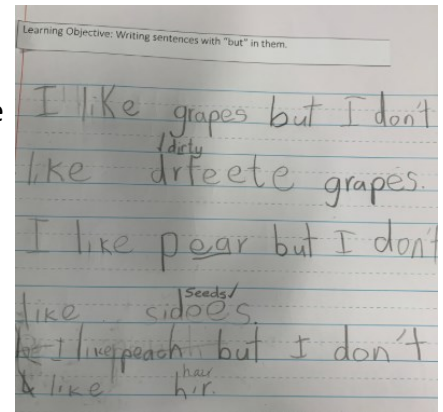 Learning Objective: Writing sentences with "but" in them.
e
I like grapes but I don't
/dirty
like drfeete grapes.
I like pear but I don't
Seeds/
like sidoes.
I like peach but I don't
hair
like hir.